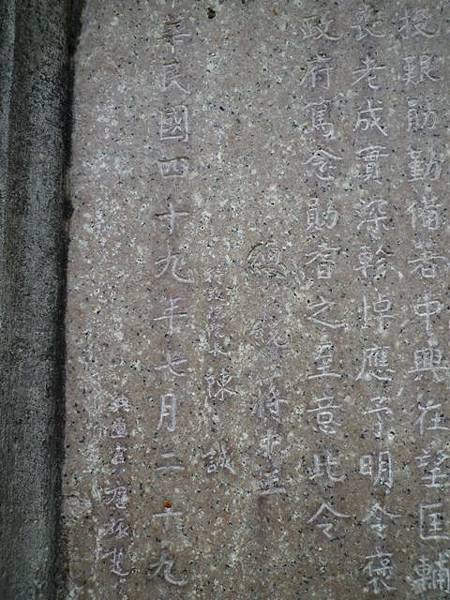 投艱勛勤備著中興在望匡輔
喪老成實深軫悼應予明令褒
政府篤念勛耆之至意此令
總 蔣中正
行政院院長 陳誠
華民國四十九年七月二十九